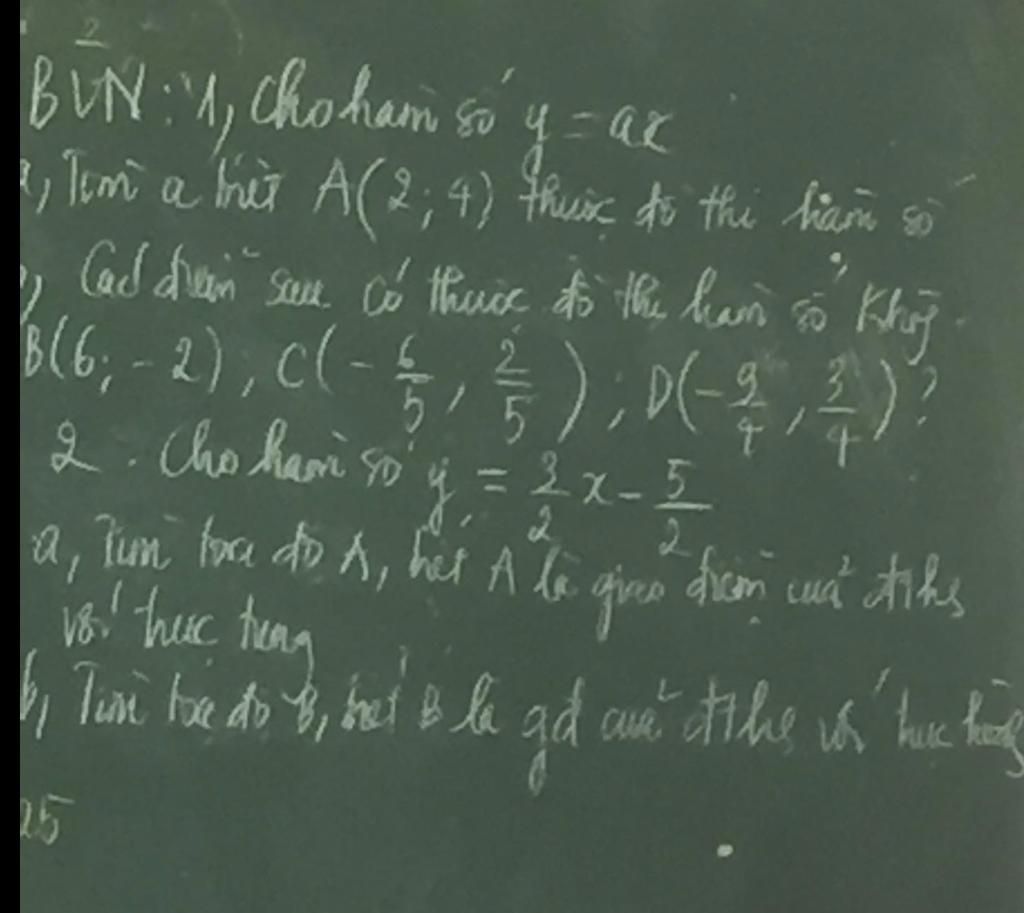 BVN: 1, Cho hàm số y = ax
a, Tìm a biết A(2; 4) thuộc đồ thị hàm số
b, Các điểm sau có thuộc đồ thị hàm số không
B(6; -2), C(-6/5, 2/5); D(-9/4, 3/4)?
2. Cho hàm số y = 3/2 x - 5/2
a, Tìm toạ độ A, biết A là giao điểm của đths
với trục tung
b, Tìm toạ độ B, biết B là gđ của đths với trục hoành
25